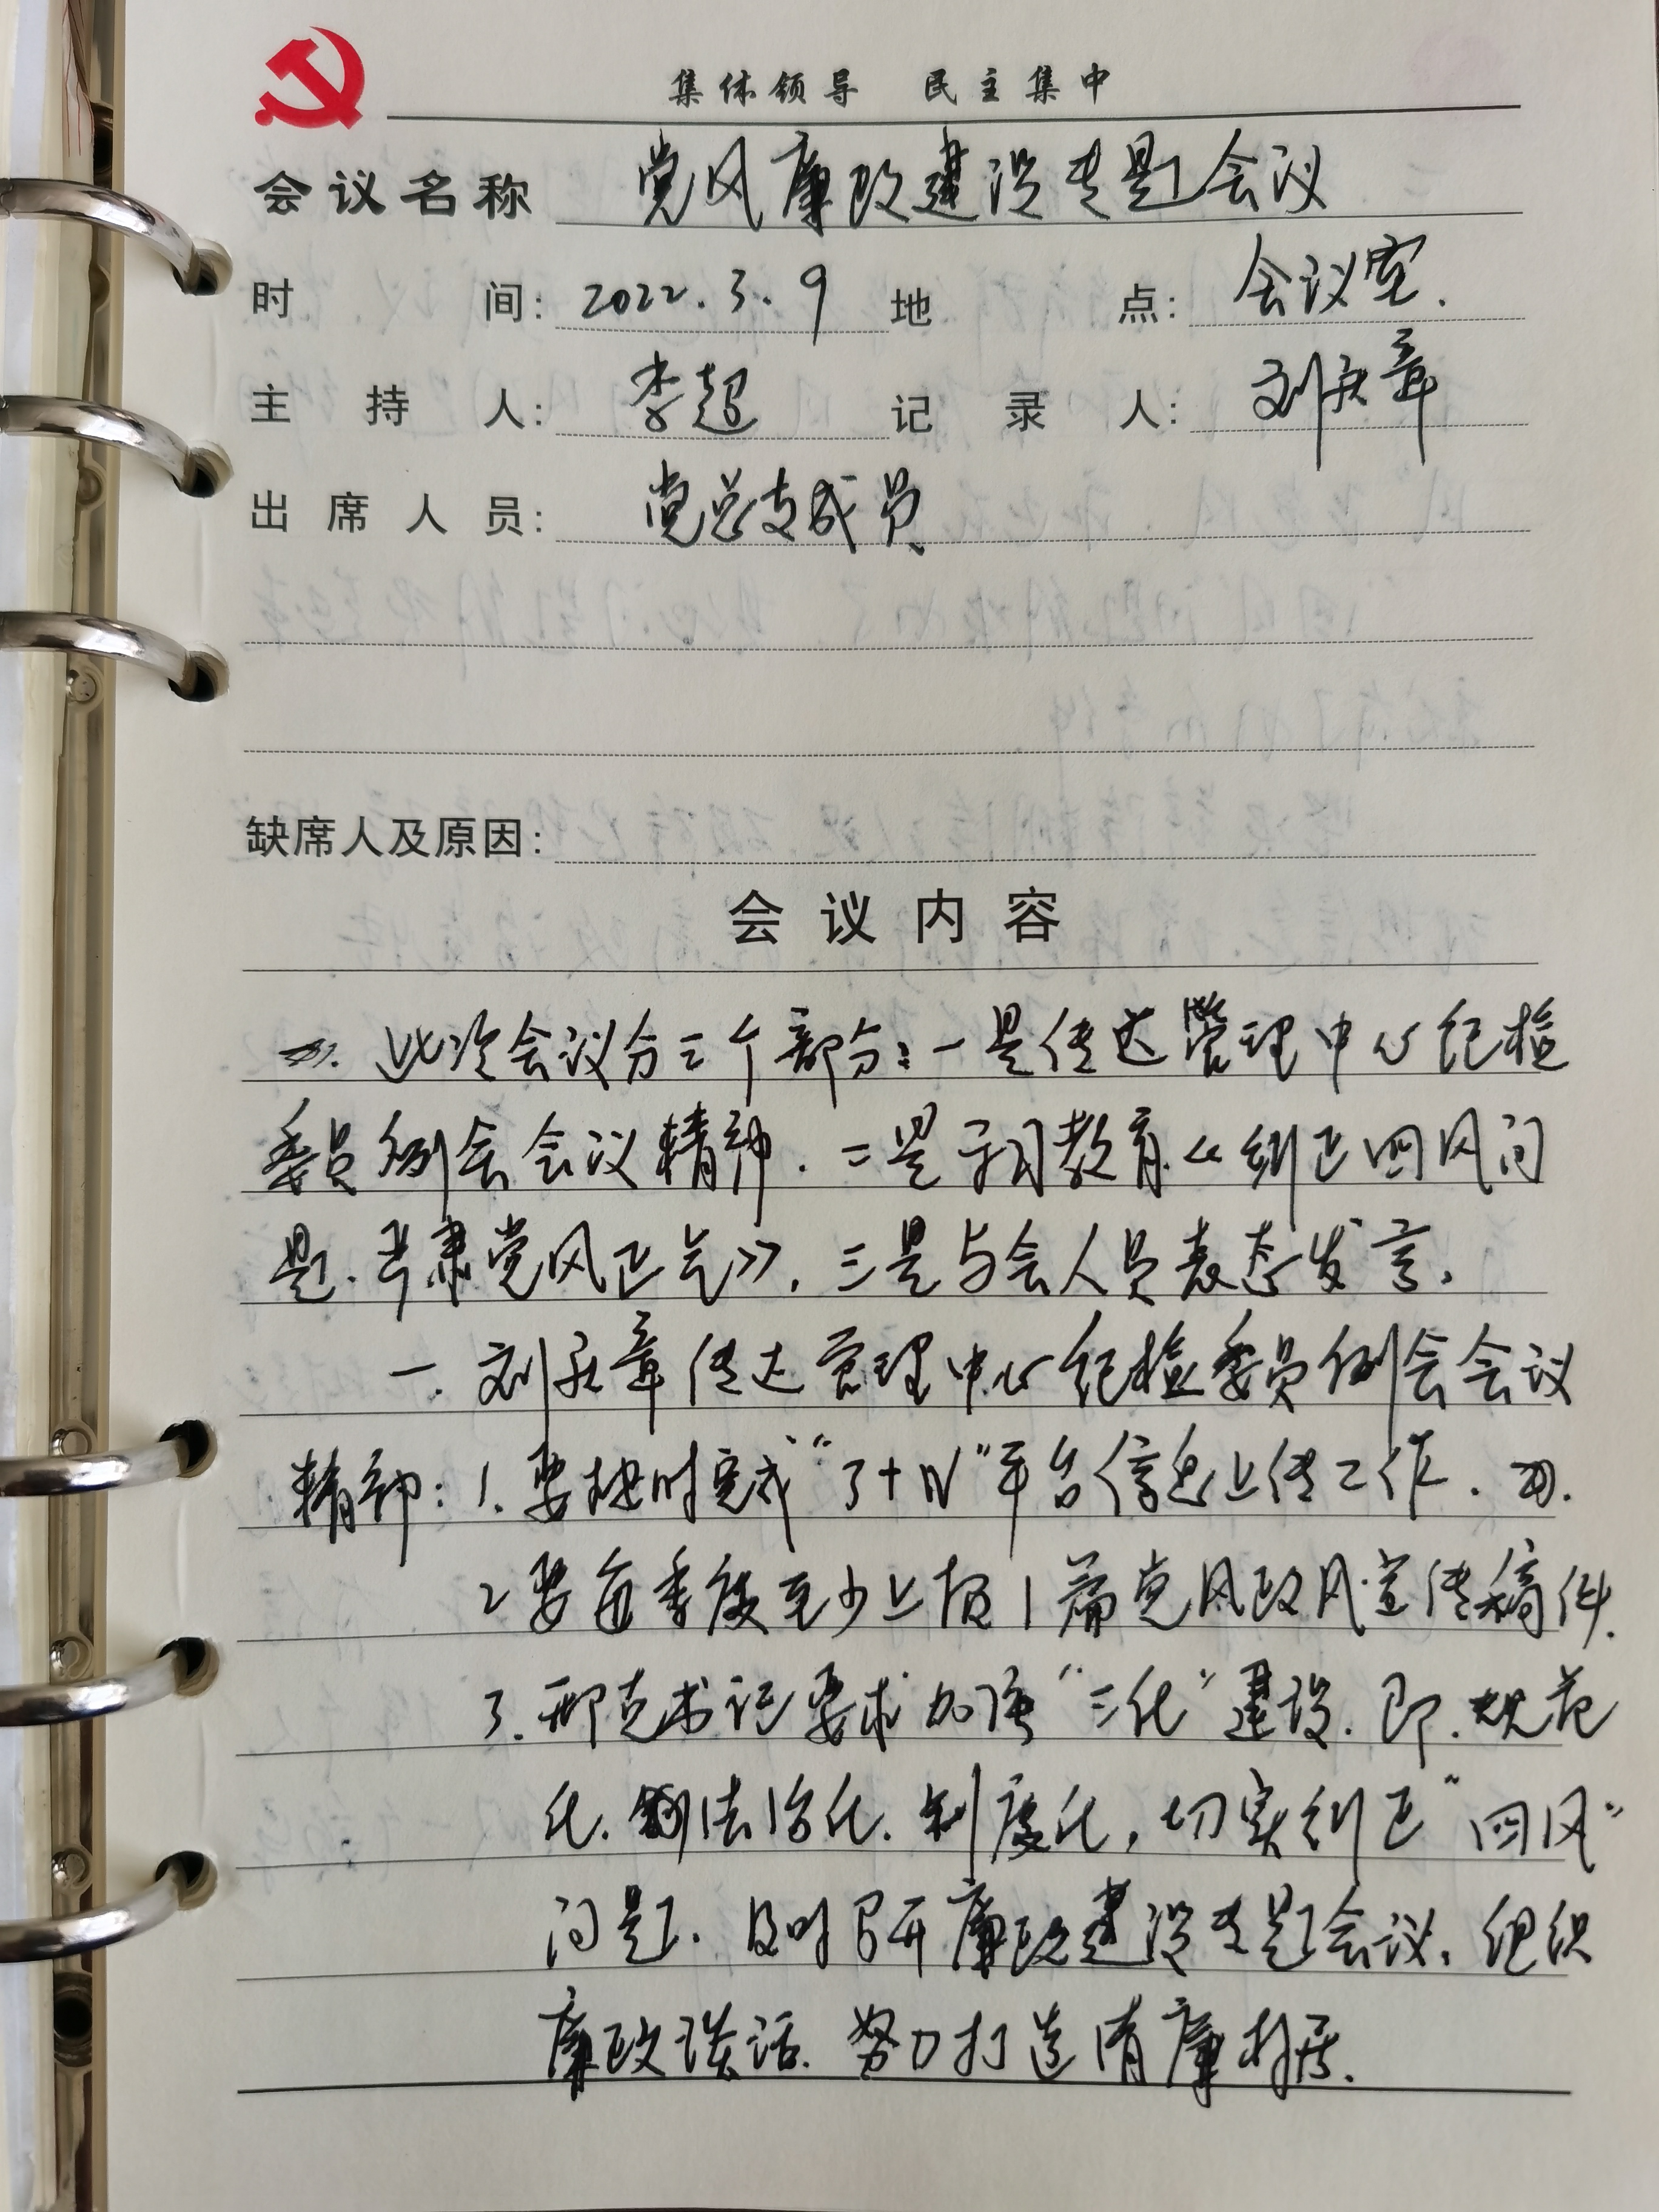 集体领导 民主集中
会议名称 党风廉政建设专题会议
时间: 2022.3.9 地点: 会议室.
主持人: 李超 记录人: 刘章
出席人员: 党总支成员
缺席人及原因:
会议内容
此次会议分三个部分:一是传达管理中心纪检
委员例会会议精神.二是学习教育《纠正四风问
题.严肃党风正气》,三是与会人员表态发言。
一.刘章传达管理中心纪检委员例会会议
精神:1.要按时完成“3+N”平台信息上传工作.
2要每季度至少上报1篇党风政风宣传稿件.
3.邢克书记要求加强“三化”建设.即.规范
化.法治化.制度化,切实纠正“四风”
问题.及时召开廉政建设专题会议.组织
廉政谈话.努力打造清廉村居.